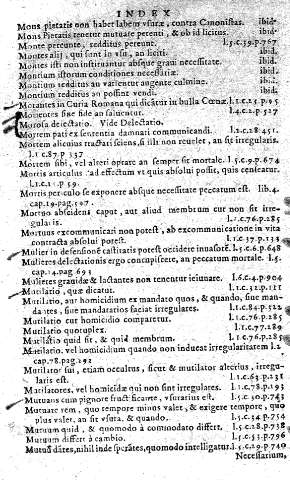 INDEX
Mons pietatis non habet labem vsuræ, contra Canonistas. ibid.
Mons Pietatis tenetur mutuare petenti, & ob id licitus. ibid.
Monte pereunte, redditus pereunt. l.5.c.39.p.767
Montes alij, qui sunt in vsu, an liciti. ibid.
Montes isti non instituantur absque graui necessitate. ibid.
Montium istorum conditiones necessariæ. ibid.
Montium redditus an varientur argente culmine. ibid.
Montium redditus an possint vendi. ibid.
Morantes in Curia Romana qui dicātur in bulla Cœnæ. l.1.c.25.p.95
Morientes sine fide an saluentur. l.4.c.2.p.327
Morosa delectatio. Vide Delectatio.
Mortem pati ex sententia damnati communicandi. l.2.c.2 p.451.
Mortem alicuius tractari sciens, si illi non reuelet, an sit irregularis.
l.1.c.87.p 137
Mortem sibi, vel alteri optare an semper sit mortale. l.5.c.9.p.674
Mortis articulus ad effectum vt quis absolui possit, quis censicatur.
l.1.c.21.p.59.
Mortis periculo se exponere absque necessitate peccatum est. lib.4.
cap.19.pag.597.
Mortuo abscidens caput, aut aliud membrum cur non sit irregularis.
l.1.c.76.p.285
Mortuus excommunicari non potest, ab excommunicatione in vita
contracta absolui potest. l.1.c.37.p.133
Mulier in defensionē castitatis potest occidere inuasorē. l.5.c.6.p.648
Mulieres delectationis ergo concupiscere, an peccatum mortale. l.5.
cap.14.pag 693
Mulieres grauidæ & lactantes non tenentur ieiunare. l.6.c.4.p.904
Mutilatio, quæ dicatur. l.1.c.32.p.111
Mutilatio, aut homicidium ex mandato quos, & quando, siue mandantes,
siue mandatarios faciat irregulares. l.1.c.84.p.322
Mutilatio cui homicidio comparetur. l.1.c.76.p.285
Mutilatio quotuplex. l.1.c.77.p.289
Mutilatio quid sit, & quid membrum. l.1.c.76.p.285
Mutilatio, vel homicidium quando non inducat irregularitatem l.1
cap.78.pag.292
Mutilator sui, etiam occultus, sicut & mutilator alterius, irregularis
est. l.1.c.63.p.231
Mutilatores, vel homicidæ qui non sint irregulares. l.1.c.78.p.193
Mutuans cum pignore fructificante, vsurarius est. l.5.c.30.p.743
Mutuare rem, quo tempore minus valet, & exigere tempore, quo
plus valet, an sit vsura, & quando. l.5.c.34.p.756
Mutuum quid, & quomodo à commodato differt. l.5.c.28.p.738
Mutuum differt à cambio. l.5.c.51.p.796
Mutuū dātes, nihil inde sperātes, quomodo intelligatur. l.5.c.29.p.740
Necessarium,